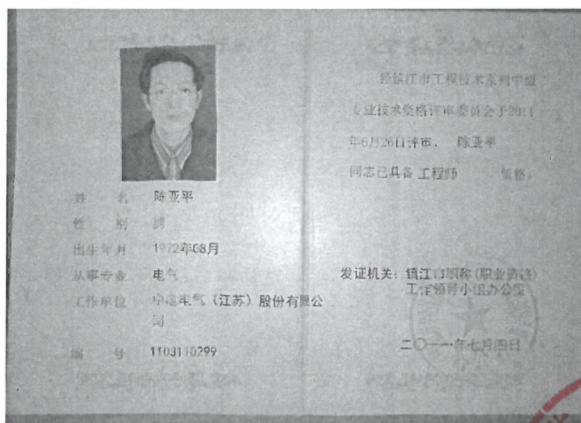 姓 名 陈亚平
性 别 男
出生年月 1972年08月
从事专业 电气
工作单位 电气（江苏）股份有限公
司
编 号 1103110299
经镇江市工程技术系列中级
专业技术资格评审委员会于2011
年6月26日评审， 陈亚平
同志已具备 工程师 资格。
发证机关：镇江市职称（职业资格）
工作领导小组办公室
二〇一一年七月四日